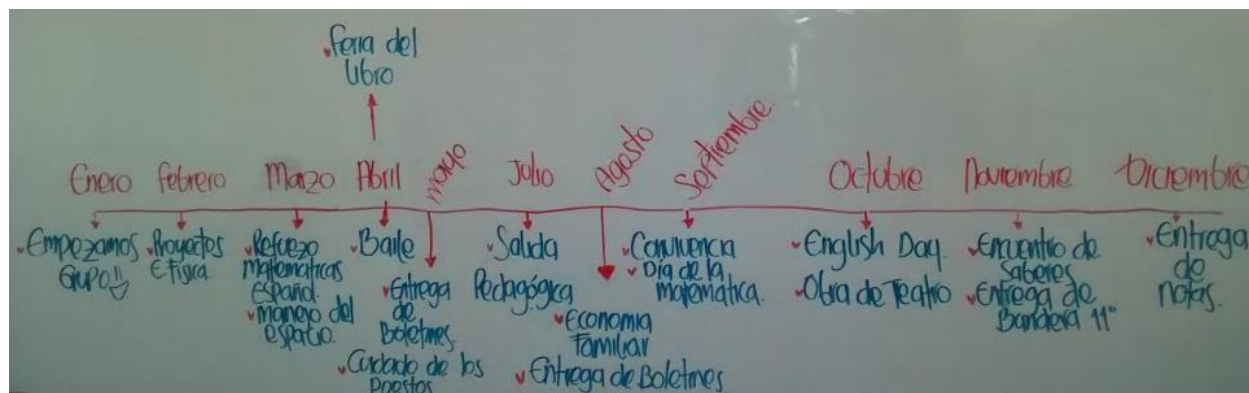 feria del
libro
Enero febrero Marzo Abril mayo Julio Agosto Septiembre Octubre Noviembre Diciembre
Empezamos
Grupo!!
Proyectos
E física
Refuezo
matematicas
Español.
manejo del
espacio.
Baile
Entrega
de
Boletines.
Cuidado de los
Puestos
Salida
Pedagógica
Economia
Familiar
Entrega de Boletines
Convivencia
Dia de la
matemática.
English Day.
Obra de Teatro
Encuentro de
Saberes
Entrega de
Bandera 11°
Entrega
de
notas.